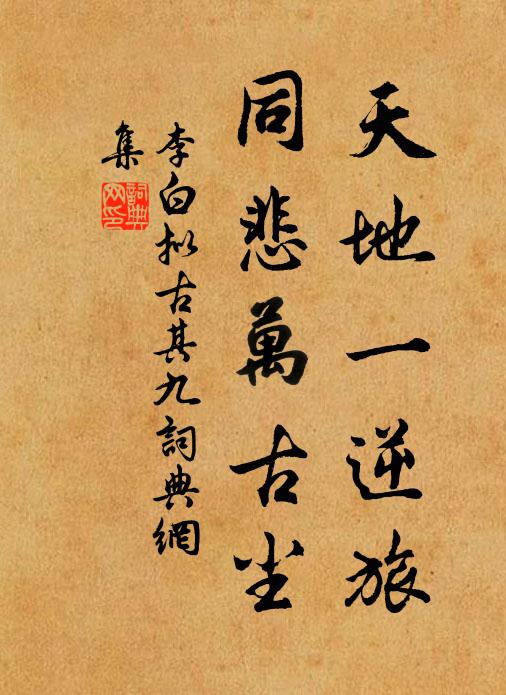 天地一逆旅
同悲萬古尘
李白拟古其九詞典網
集
詞典
网印